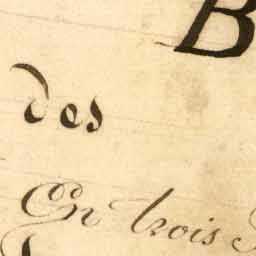 B
des
En trois